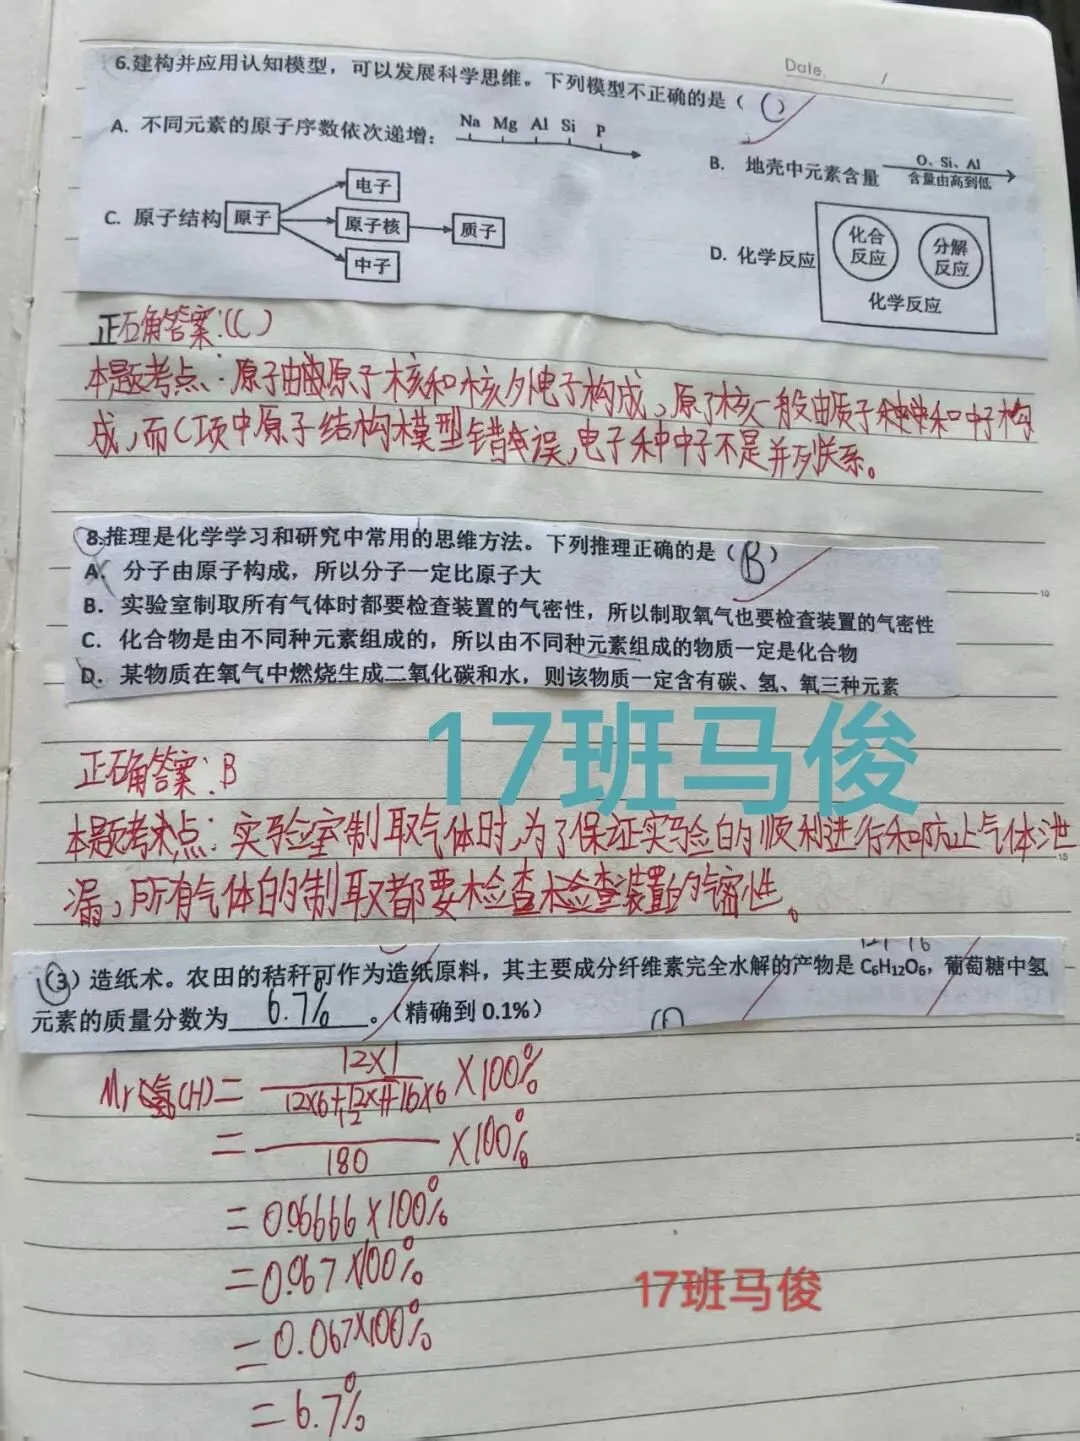 Date. /
6.建构并应用认知模型，可以发展科学思维。下列模型不正确的是（C）
A. 不同元素的原子序数依次递增： Na Mg Al Si P
B. 地壳中元素含量 O、Si、Al 含量由高到低
C. 原子结构 原子 电子 原子核 质子 中子
D. 化学反应 化合反应 分解反应 化学反应
正确答案:(C)
本题考点：原子由原子核和核外电子构成，原子核一般由质子和中子构
成，而C项中原子结构模型错误，电子和中子不是并列关系。
8.推理是化学学习和研究中常用的思维方法。下列推理正确的是（B）
A. 分子由原子构成，所以分子一定比原子大
B. 实验室制取所有气体时都要检查装置的气密性，所以制取氧气也要检查装置的气密性
C. 化合物是由不同种元素组成的，所以由不同种元素组成的物质一定是化合物
D. 某物质在氧气中燃烧生成二氧化碳和水，则该物质一定含有碳、氢、氧三种元素
17班马俊
正确答案：B
本题考点：实验室制取气体时，为了保证实验的顺利进行和防止气体泄
漏，所有气体的制取都要检查装置的气密性。
（3）造纸术。农田的秸秆可作为造纸原料，其主要成分纤维素完全水解的产物是 C₆H₁₂O₆，葡萄糖中氢
元素的质量分数为6.7%。（精确到 0.1%）
Mr氢(H)= 12×1 / 12×6+12×1+16×6 ×100%
= 12 / 180 ×100%
=0.06666×100%
=0.067×100%
=0.067×100%
=6.7%
17班马俊